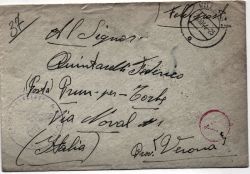 37
Feldpost
Al Signor
Quintarelli Federico
(Posta) Prun-per-Torbe
Via Noval N
(Italia) Prov. Verona